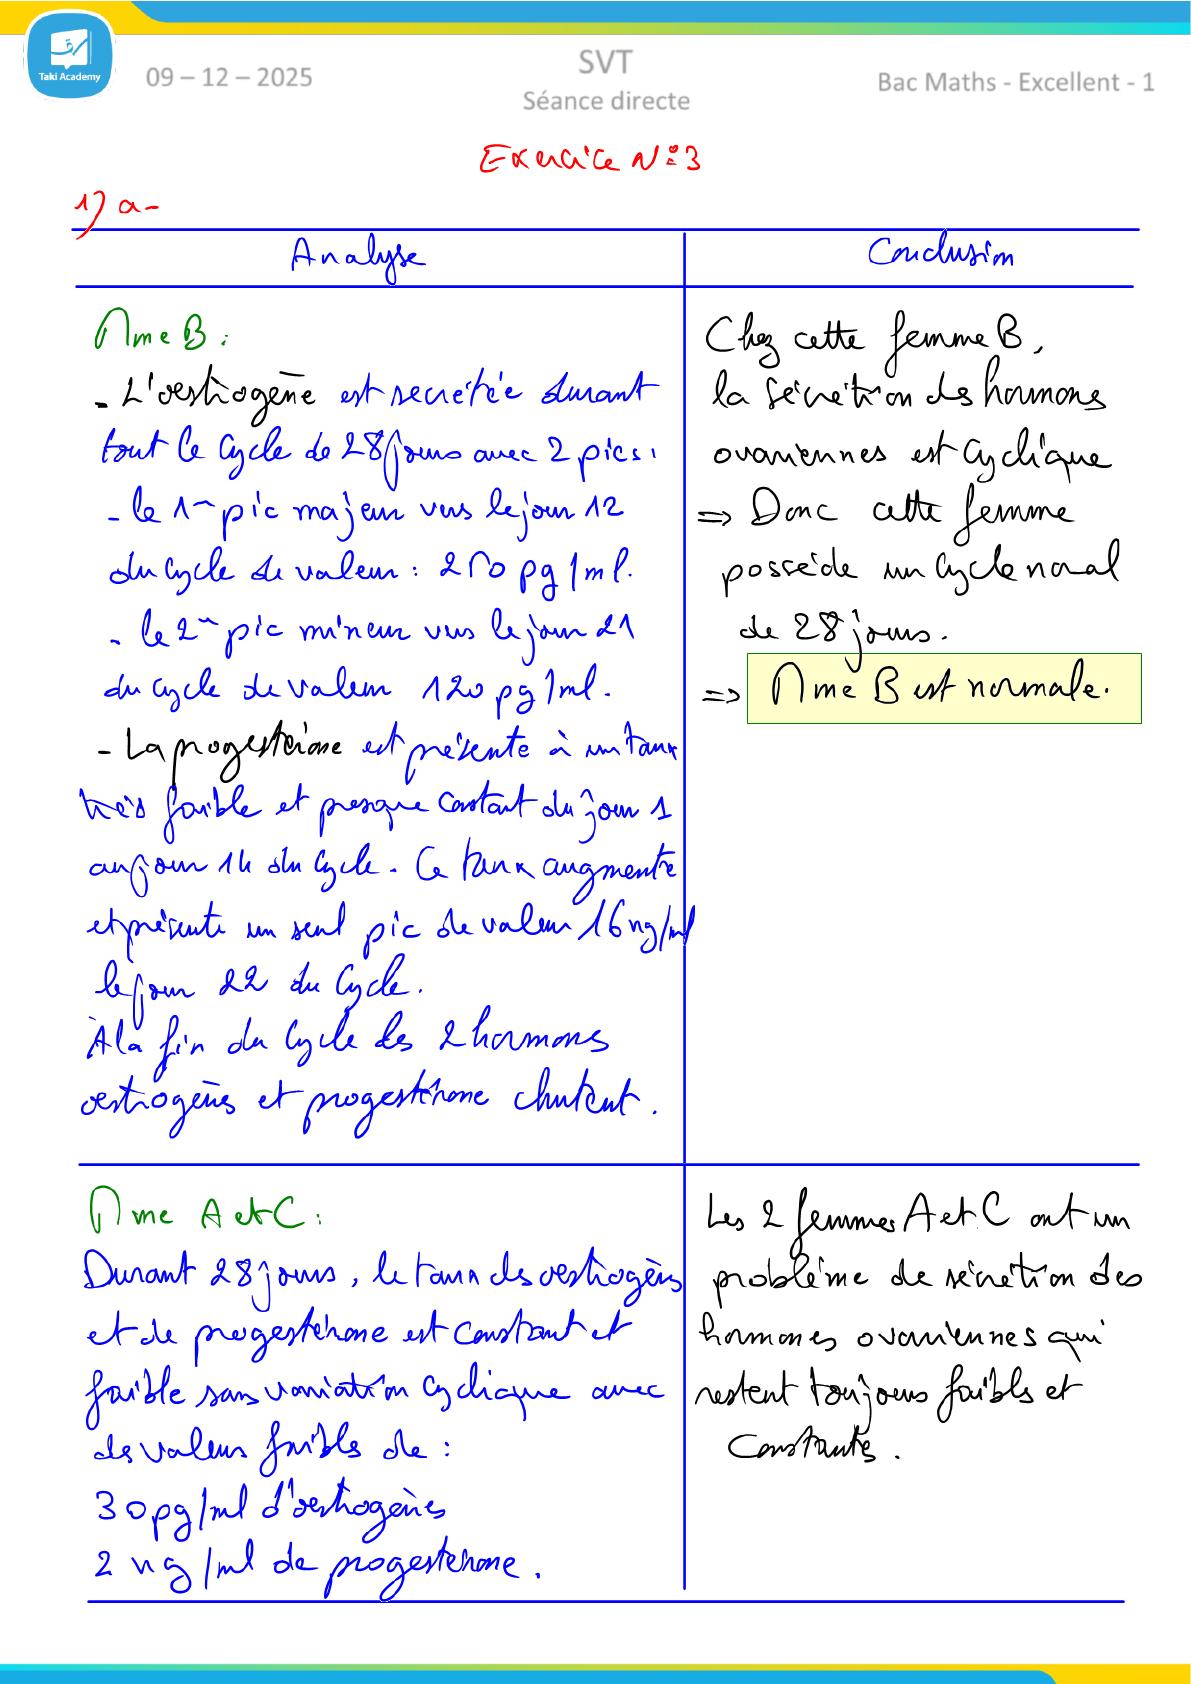 Taki Academy
09 – 12 – 2025
SVT
Séance directe
Bac Maths - Excellent - 1
Exercice N°:3
1) a-
Analyse
Conclusion
Mme B :
- L'oestrogène est secrétée durant
tout le cycle de 28 jours avec 2 pics :
- le 1er pic majeur vers le jour 12
du cycle de valeur : 250 pg/ml.
- le 2em pic mineur vers le jour 21
du cycle de valeur 120 pg/ml.
- La progestérone est présente à un taux
très faible et presque constant du jour 1
au jour 14 du cycle. Ce taux augmente
et présente un seul pic de valeur 16 ng/ml
le jour 22 du cycle.
À la fin du cycle les 2 hormones
oestrogènes et progestérone chutent.
Chez cette femme B,
la sécrétion des hormons
ovariennes est cyclique
=> Donc cette femme
possède un cycle noral
de 28 jours.
=> Mme B est normale.
Mme A et C :
Durant 28 jours, le taux des oestrogènes
et de progestérone est constant et
faible sans variation cyclique avec
des valeurs faibles de :
30 pg/ml d'oestrogènes
2 ng/ml de progesterone.
Les 2 femmes A et C ont un
problème de sécrétion des
hormones ovariennes qui
restent toujours faibles et
constantes.